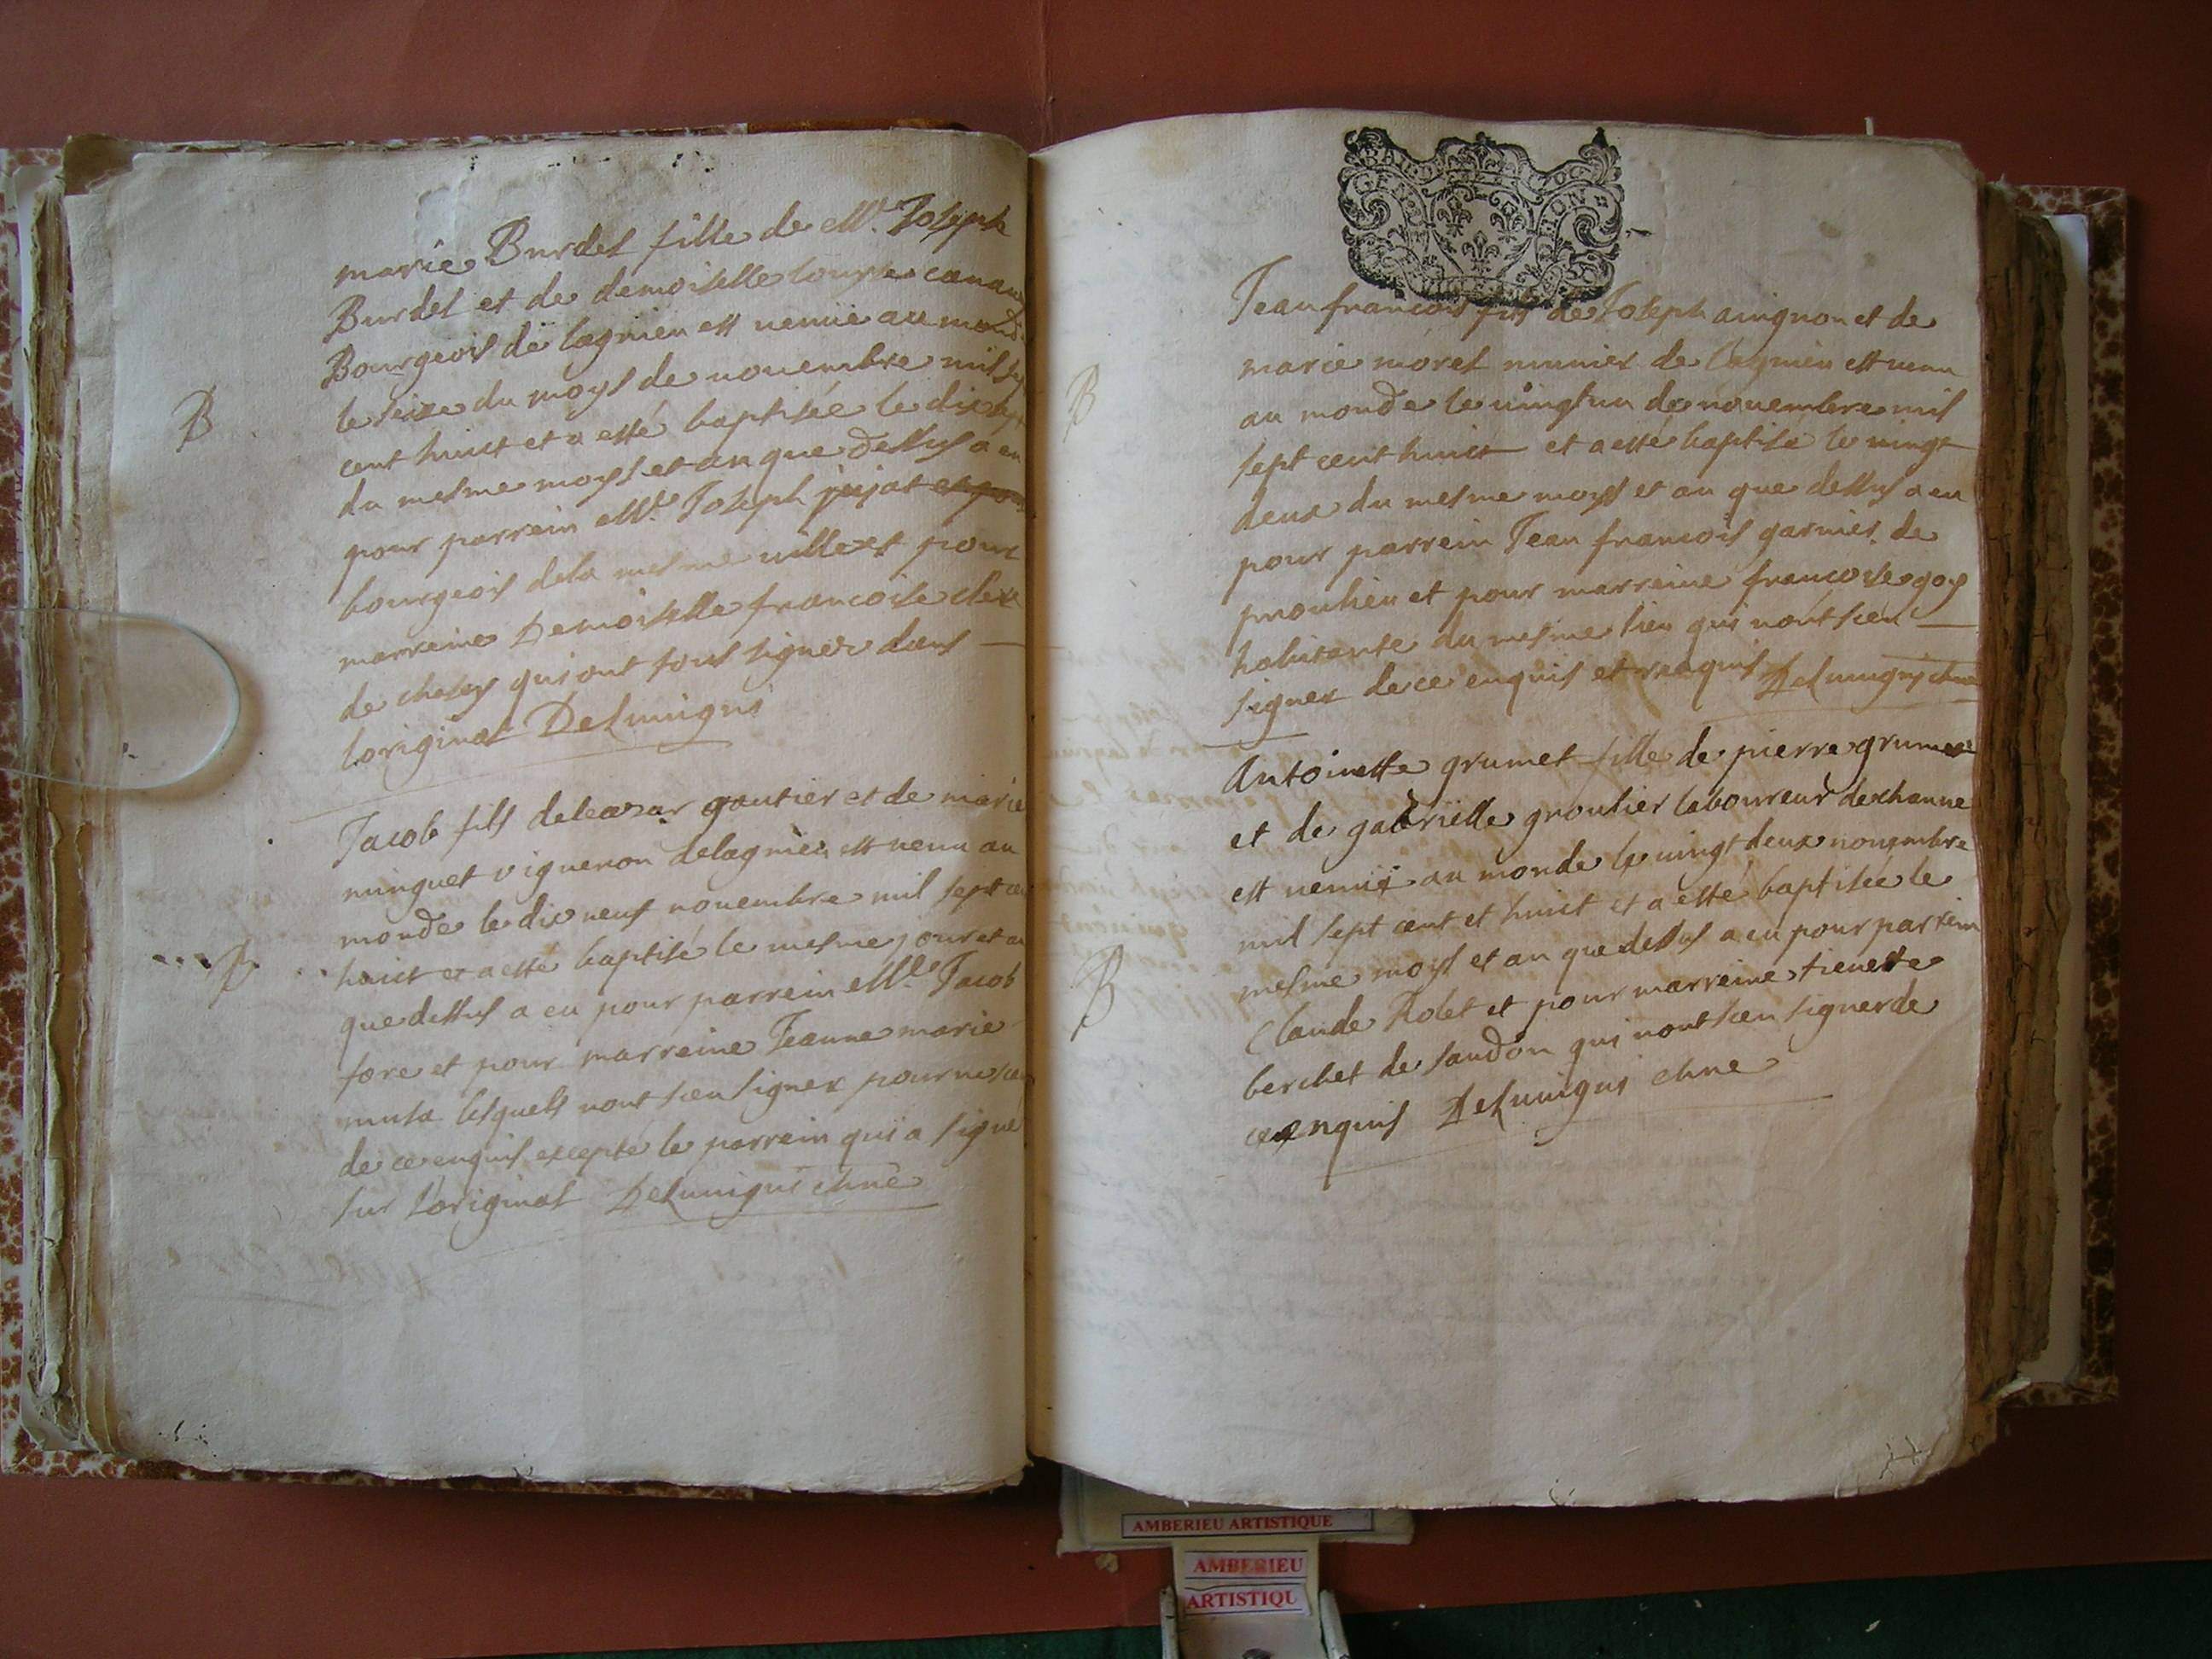 marie Burdel fille de Mr. Joseph
Burdel et de demoiselle louyse canard
Bourgeois de lagnieu est venüe au monde
le seize du moys de novembre mil sept
B
cent huict et a esté baptisée le dix sept
du mesme moys et an que dessus a eu
pour parrein Mr. Joseph jujat et pour
bourgeois dela mesme ville et pour
marreine Demoiselle francoise
de qui ont tous signer dans
loriginal Delunigni
Jacob fils deleazar gautier et de marie
minguet vigneron delagnieu est venu au
monde le dix neuf novembre mil sept cent
B
huict et a esté baptisé le mesme jour et an
que dessus a eu pour parrein Mr. Jacob
fore et pour marreine Jeanne marie
lesquels nont sceu signer pour
de ce enquis excepte le parrein qui a signe
sur loriginal Delunigni
GENERATION
Jean francois fils de Joseph avignon et de
marie morel munier de lagnieu est venu
B
au monde le vingt un de novembre mil
sept cent huict et a esté baptisé le vingt
deux du mesme moys et an que dessus a eu
pour parrein Jean francois garnier de
proulieu et pour marreine francoise goy
habitante du mesme lieu qui nont sceu
signer de ce enquis et requis Delunigni
Antoinette grumet fille de pierre grumet
et de gabrielle groulier laboureur de
est venüe au monde le vingt deux novembre
mil sept cent et huict et a esté baptisée le
mesme moys et an que dessus a eu pour parrein
B
Claude Rolet et pour marreine tienette
berchet de saudon qui nont sceu signer de
ce enquis Delunigni
AMBERIEU ARTISTIQUE
AMBERIEU
ARTISTIQU